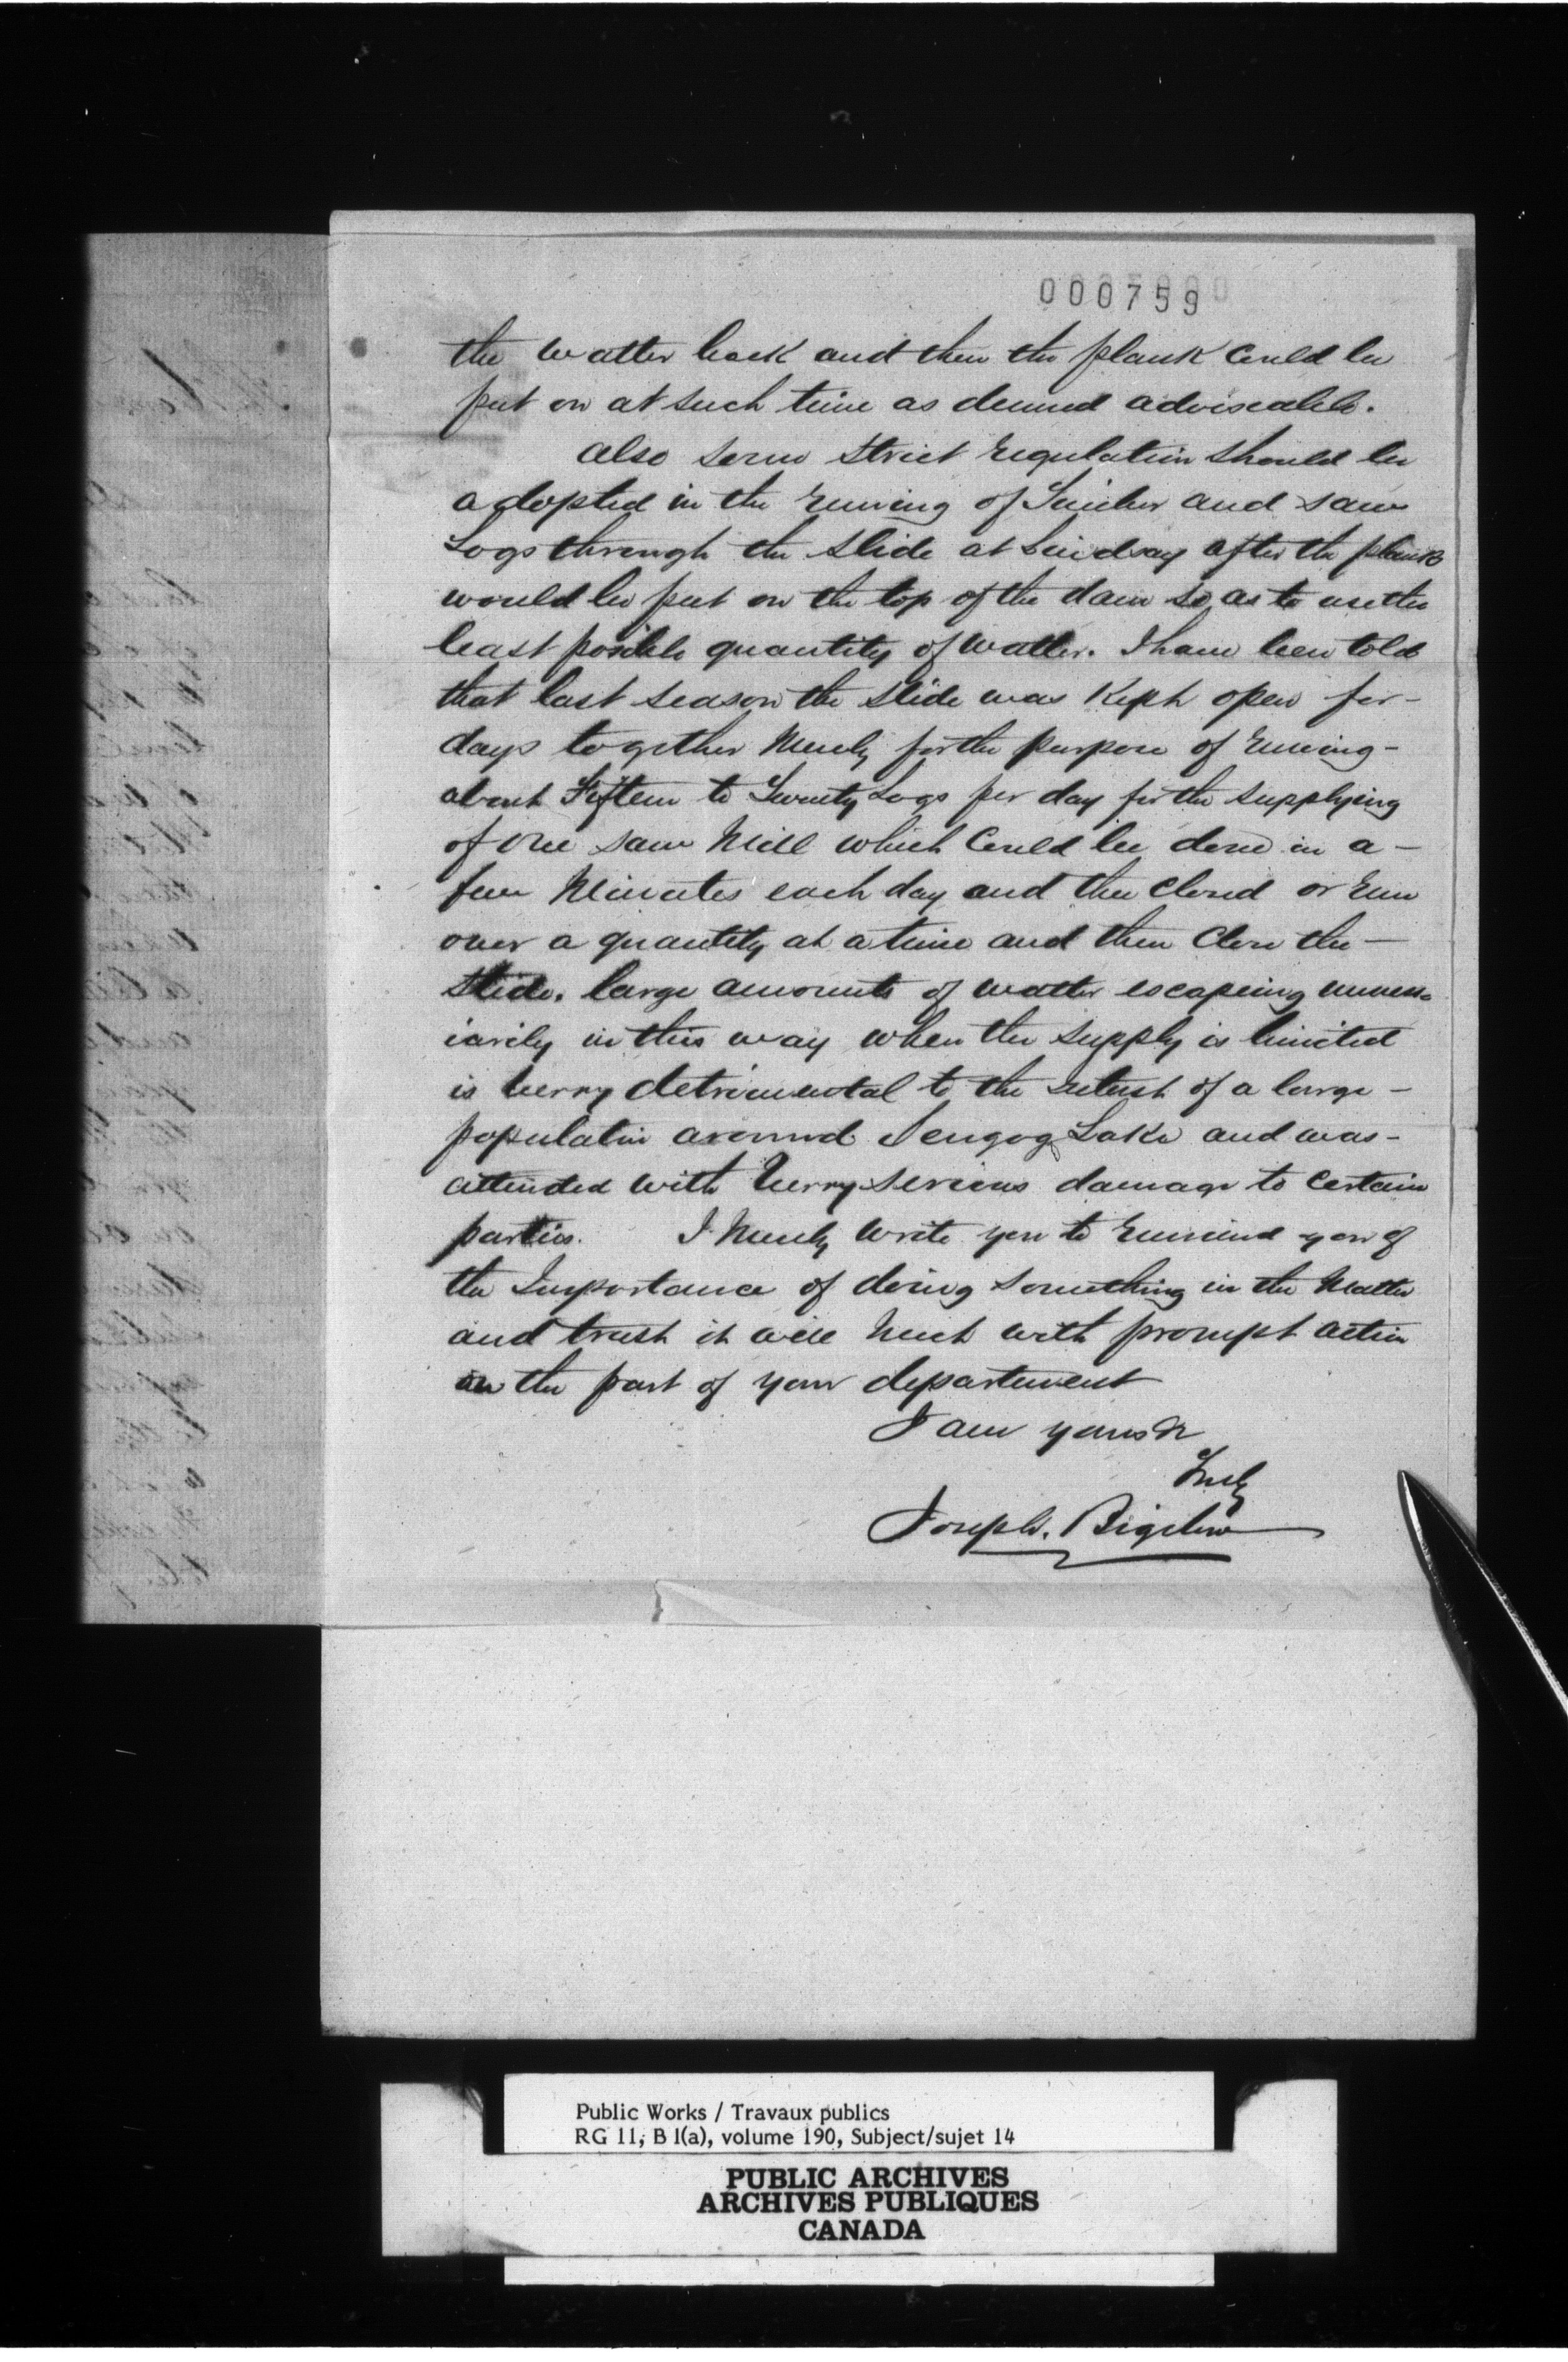 000759
the watter back and then the plank Could be
put on at such time as deemed adviseable.
Also some strict regulation should be
adopted in the runing of Timber and saw
Logs through the slide at Lindsay after the plank
would be put on the top of the dam so as to use the
least posible quantity of watter. I have been told
that last season the slide was kept open for-
days together Merely for the purpose of runing-
about Fifteen to Twenty Logs per day for the supplying
of one saw Mill which Could be done in a-
few Minutes each day and then Closed or run
over a quantity at a time and then Close the-
slide. large amounts of watter escapeing unness-
iarily in this way when the supply is limited
is verry detrimental to the Interest of a large-
population around Scugog Lake and was-
attended with verry serious damage to Certain
parties. I Merely write you to remind you of
the Importance of doing something in the Matter
and trust it will Meet with prompt action
on the part of your department
I am yours &c
Truly
Joseph. Bigelow
Public Works / Travaux publics
RG 11, B 1(a), volume 190, Subject/sujet 14
PUBLIC ARCHIVES
ARCHIVES PUBLIQUES
CANADA